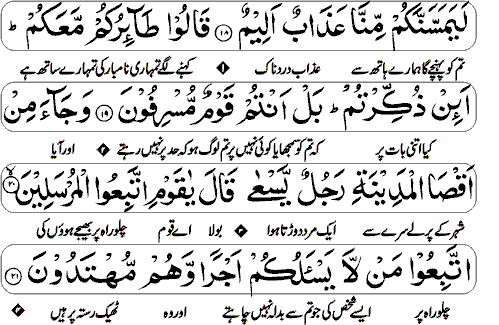 لَيَمَسَّنَّكُمْ مِّنَّا عَذَابٌ اَلِيْمٌ ﴿۱۸﴾ قَالُوْا طَآئِرُكُمْ مَّعَكُمْ ؕ
تم کو پہنچے گا ہمارے ہاتھ سے عذاب دردناک کہنے لگے تمہاری نامبارکی تمہارے ساتھ ہے
اَئِنْ ذُكِّرْتُمْ ؕ بَلْ اَنْتُمْ قَوْمٌ مُّسْرِفُوْنَ ﴿۱۹﴾ وَجَآءَ مِنْ
کیا اتنی بات پر کہ تم کو سمجھایا کوئی نہیں پر تم لوگ ہو کہ حد پر نہیں رہتے اور آیا
اَقْصَا الْمَدِيْنَةِ رَجُلٌ يَّسْعٰى قَالَ يٰقَوْمِ اتَّبِعُوا الْمُرْسَلِيْنَ ﴿۲۰﴾
شہر کے پرلے سرے سے ایک مرد دوڑتا ہوا بولا اے قوم چلو راہ پر بھیجے ہوؤں کی
اتَّبِعُوْا مَنْ لَّا يَسْـَٔلُكُمْ اَجْرًا وَّهُمْ مُّهْتَدُوْنَ ﴿۲۱﴾
چلو راہ پر ایسے شخص کی جو تم سے بدلہ نہیں چاہتے اور وہ ٹھیک رستہ پر ہیں